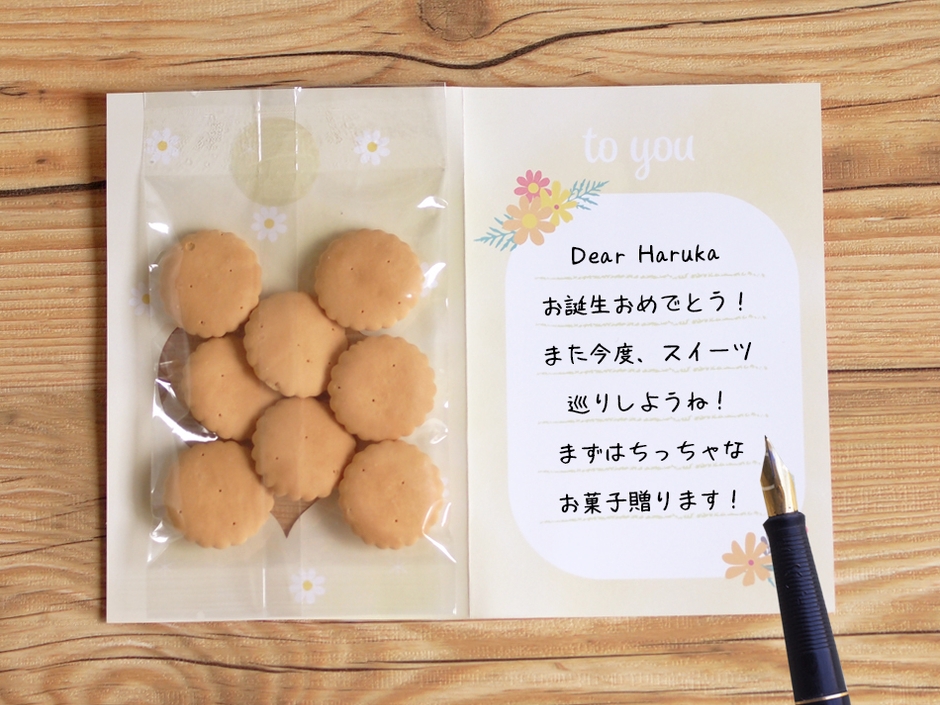 to you
Dear Haruka
お誕生おめでとう！
また今度、スイーツ
巡りしようね！
まずはちっちゃな
お菓子贈ります！